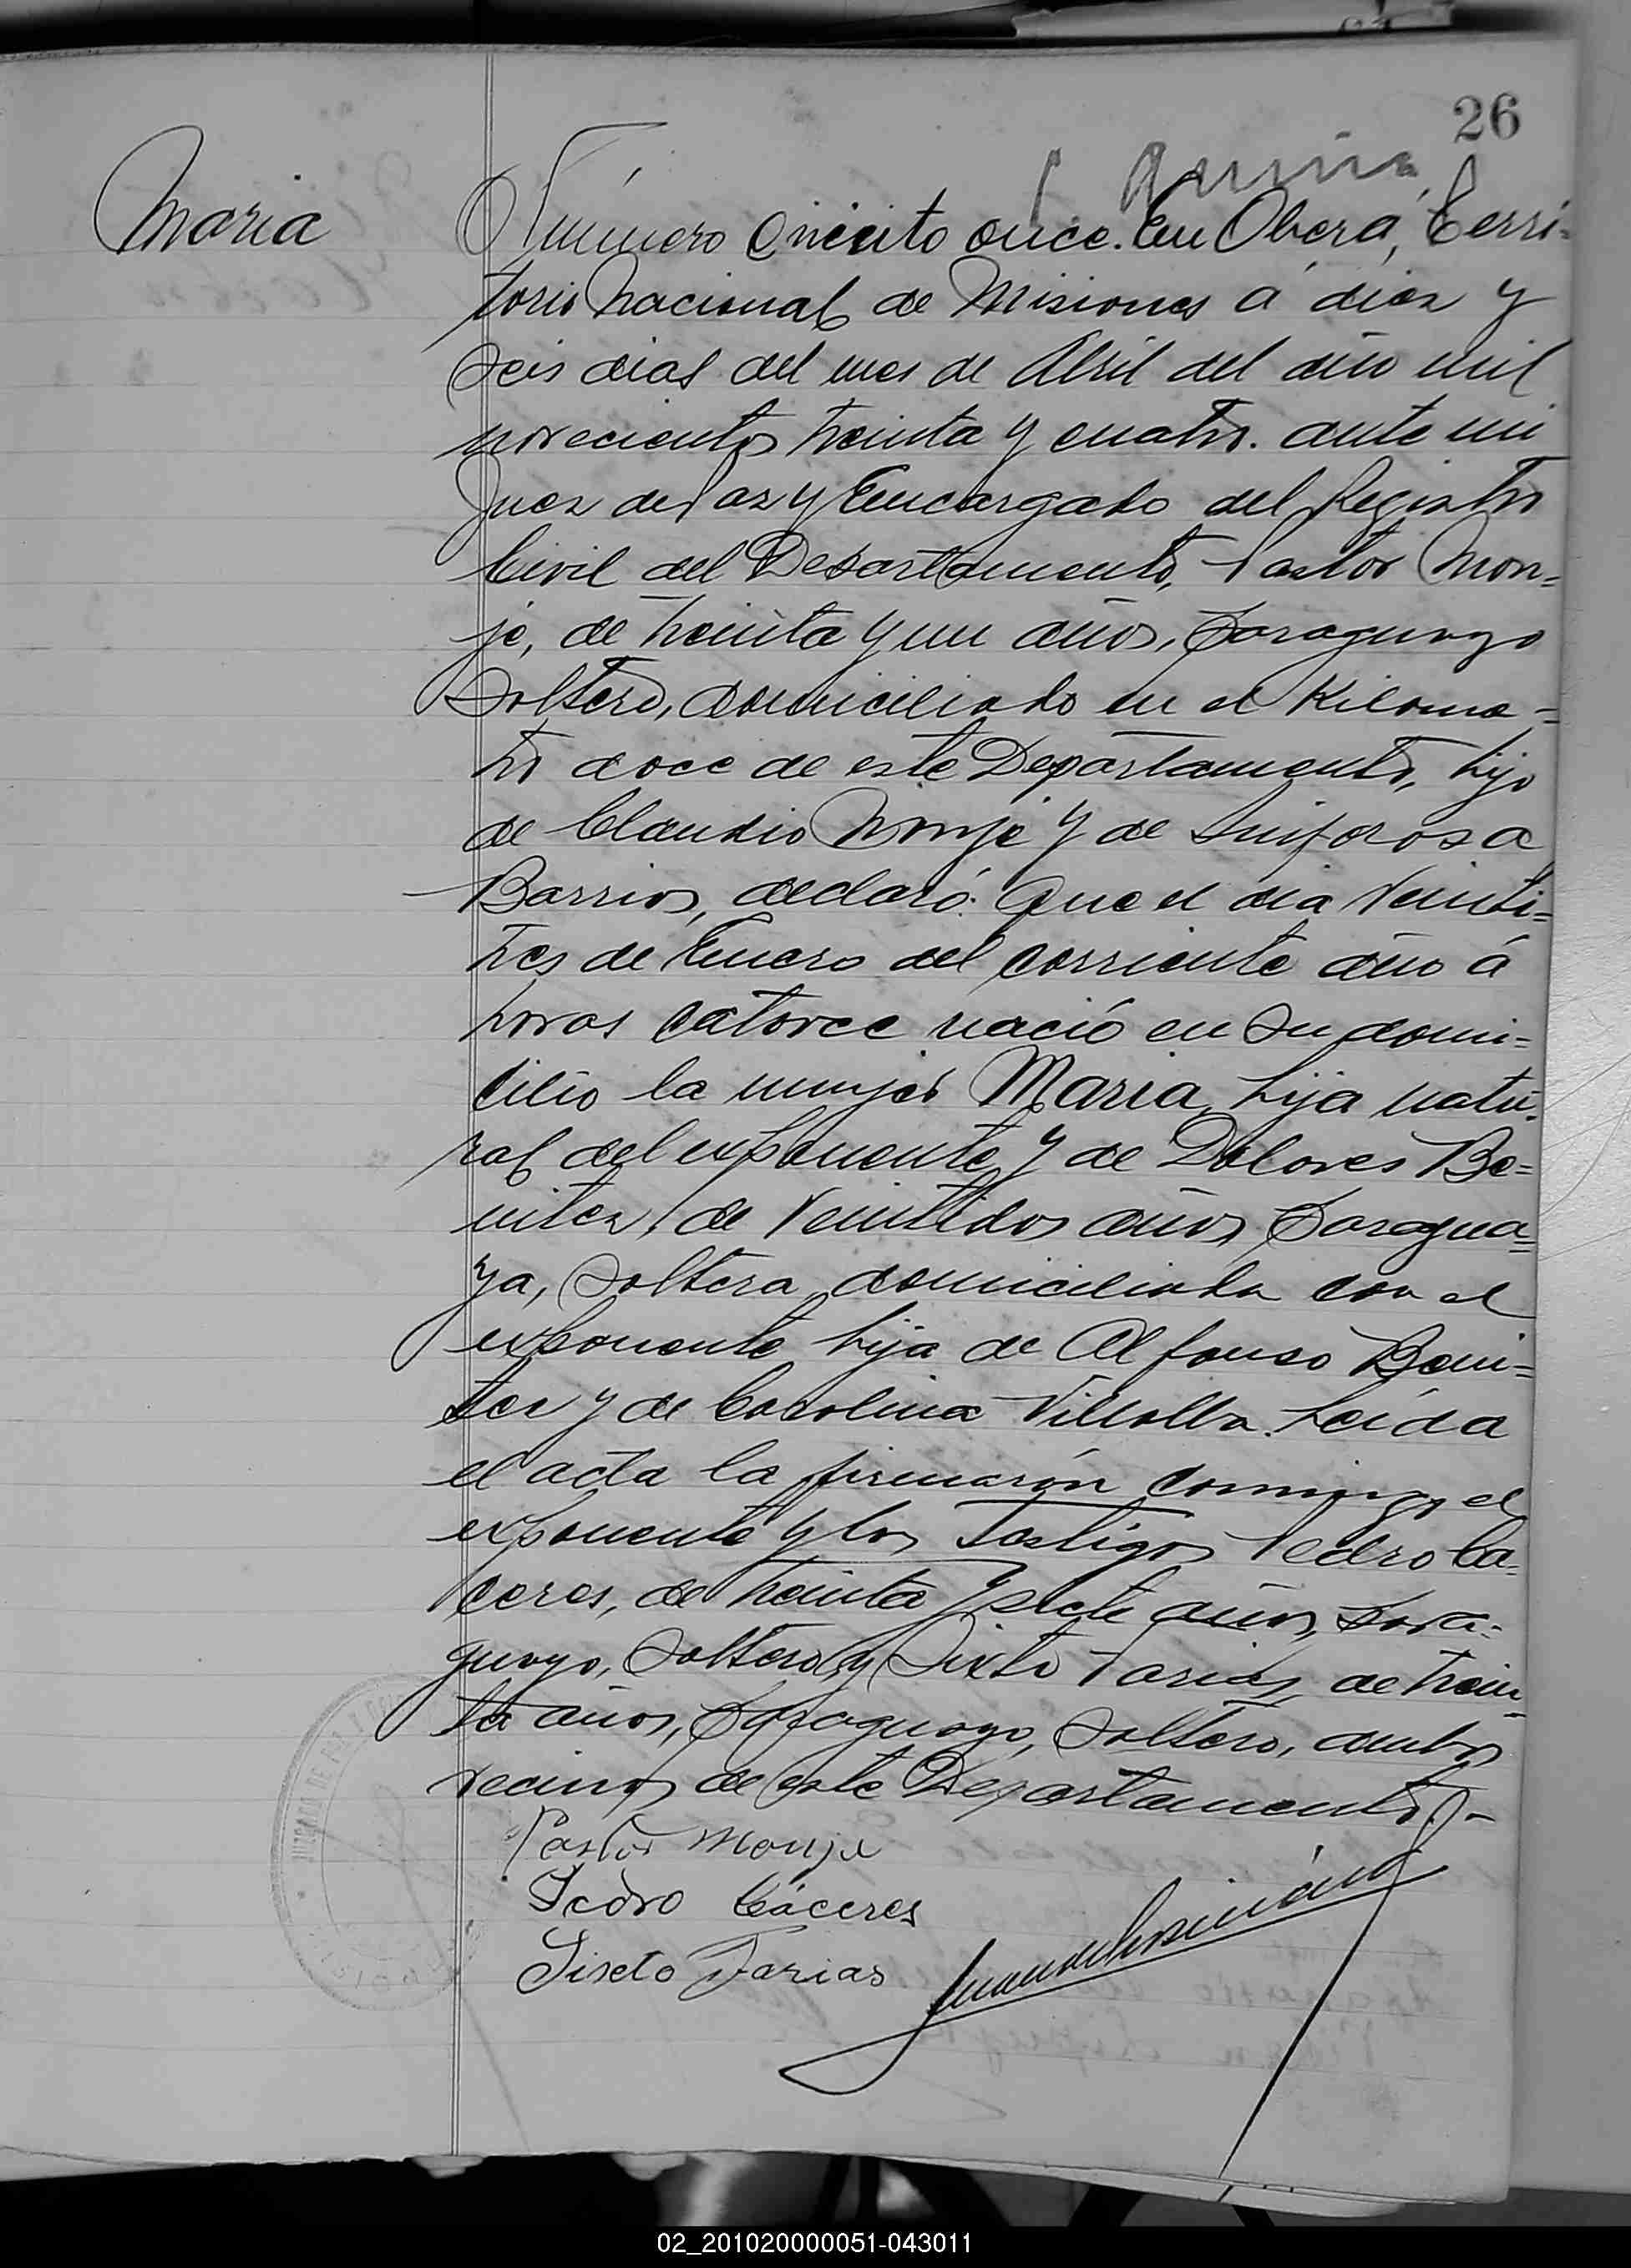 26
Maria
Número Ciento once. En Oberá, Terri=
torio Nacional de Misiones á diez y
seis dias del mes de Abril del año mil
novecientos treinta y cuatro. ante mi
Juez de Paz y Encargado del Registro
Civil del Departamento, Pastor Mon=
je, de treinta y un años, Paraguayo
Soltero, domiciliado en el Kilome=
tro doce de este Departamento, hijo
de Claudio Monje y de Sinforosa
Barrios, declaró: Que el dia Veinti=
tres de Enero del corriente año á
horas catorce nació en su domi=
cilio la mujer Maria, hija natu=
ral del exponente y de Dolores Be=
nitez, de Veintidos años, Paragua=
ya, Soltera, domiciliada con el
exponente hija de Alfonso Beni=
tez y de Carolina Villalba. Leida
el acta la firmarón conmigo el
exponente y los Testigos Pedro Ca=
ceres, de treinta y siete años, Para=
guayo, Soltero, y Sixto Farias, de trein=
ta años, Paraguayo, Soltero, ambos
vecinos de este Departamento.-
Pastor Monje
Pedro Cáceres
Sixto Farias
JUZGADO DE PAZ
02_201020000051-043011